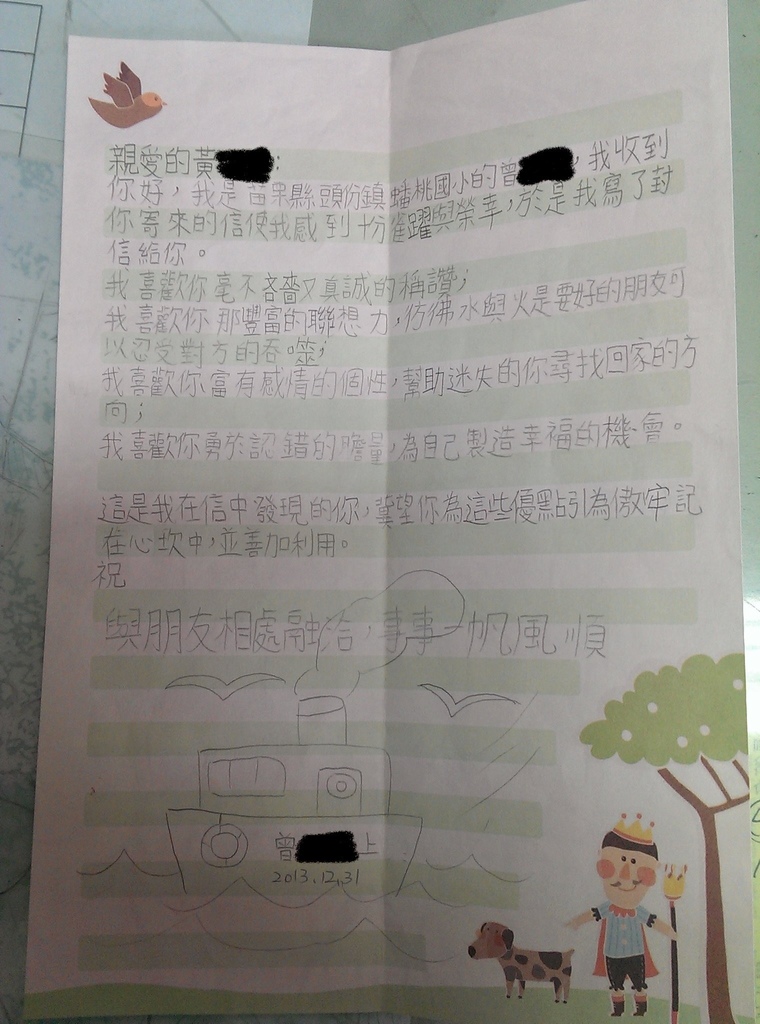 親愛的黃:
你好，我是苗栗縣頭份鎮蟠桃國小的曾，我收到
你寄來的信使我感到十份雀躍與榮幸，於是我寫了封
信給你。
我喜歡你毫不吝嗇又真誠的稱讚；
我喜歡你那豐富的聯想力，彷彿水與火是要好的朋友可
以忍受對方的吞噬；
我喜歡你富有感情的個性，幫助迷失的你尋找回家的方
向；
我喜歡你勇於認錯的膽量，為自己製造幸福的機會。
這是我在信中發現的你，冀望你為這些優點引為傲牢記
在心坎中，並善加利用。
祝
與朋友相處融洽，事事一帆風順
曾上
2013.12.31